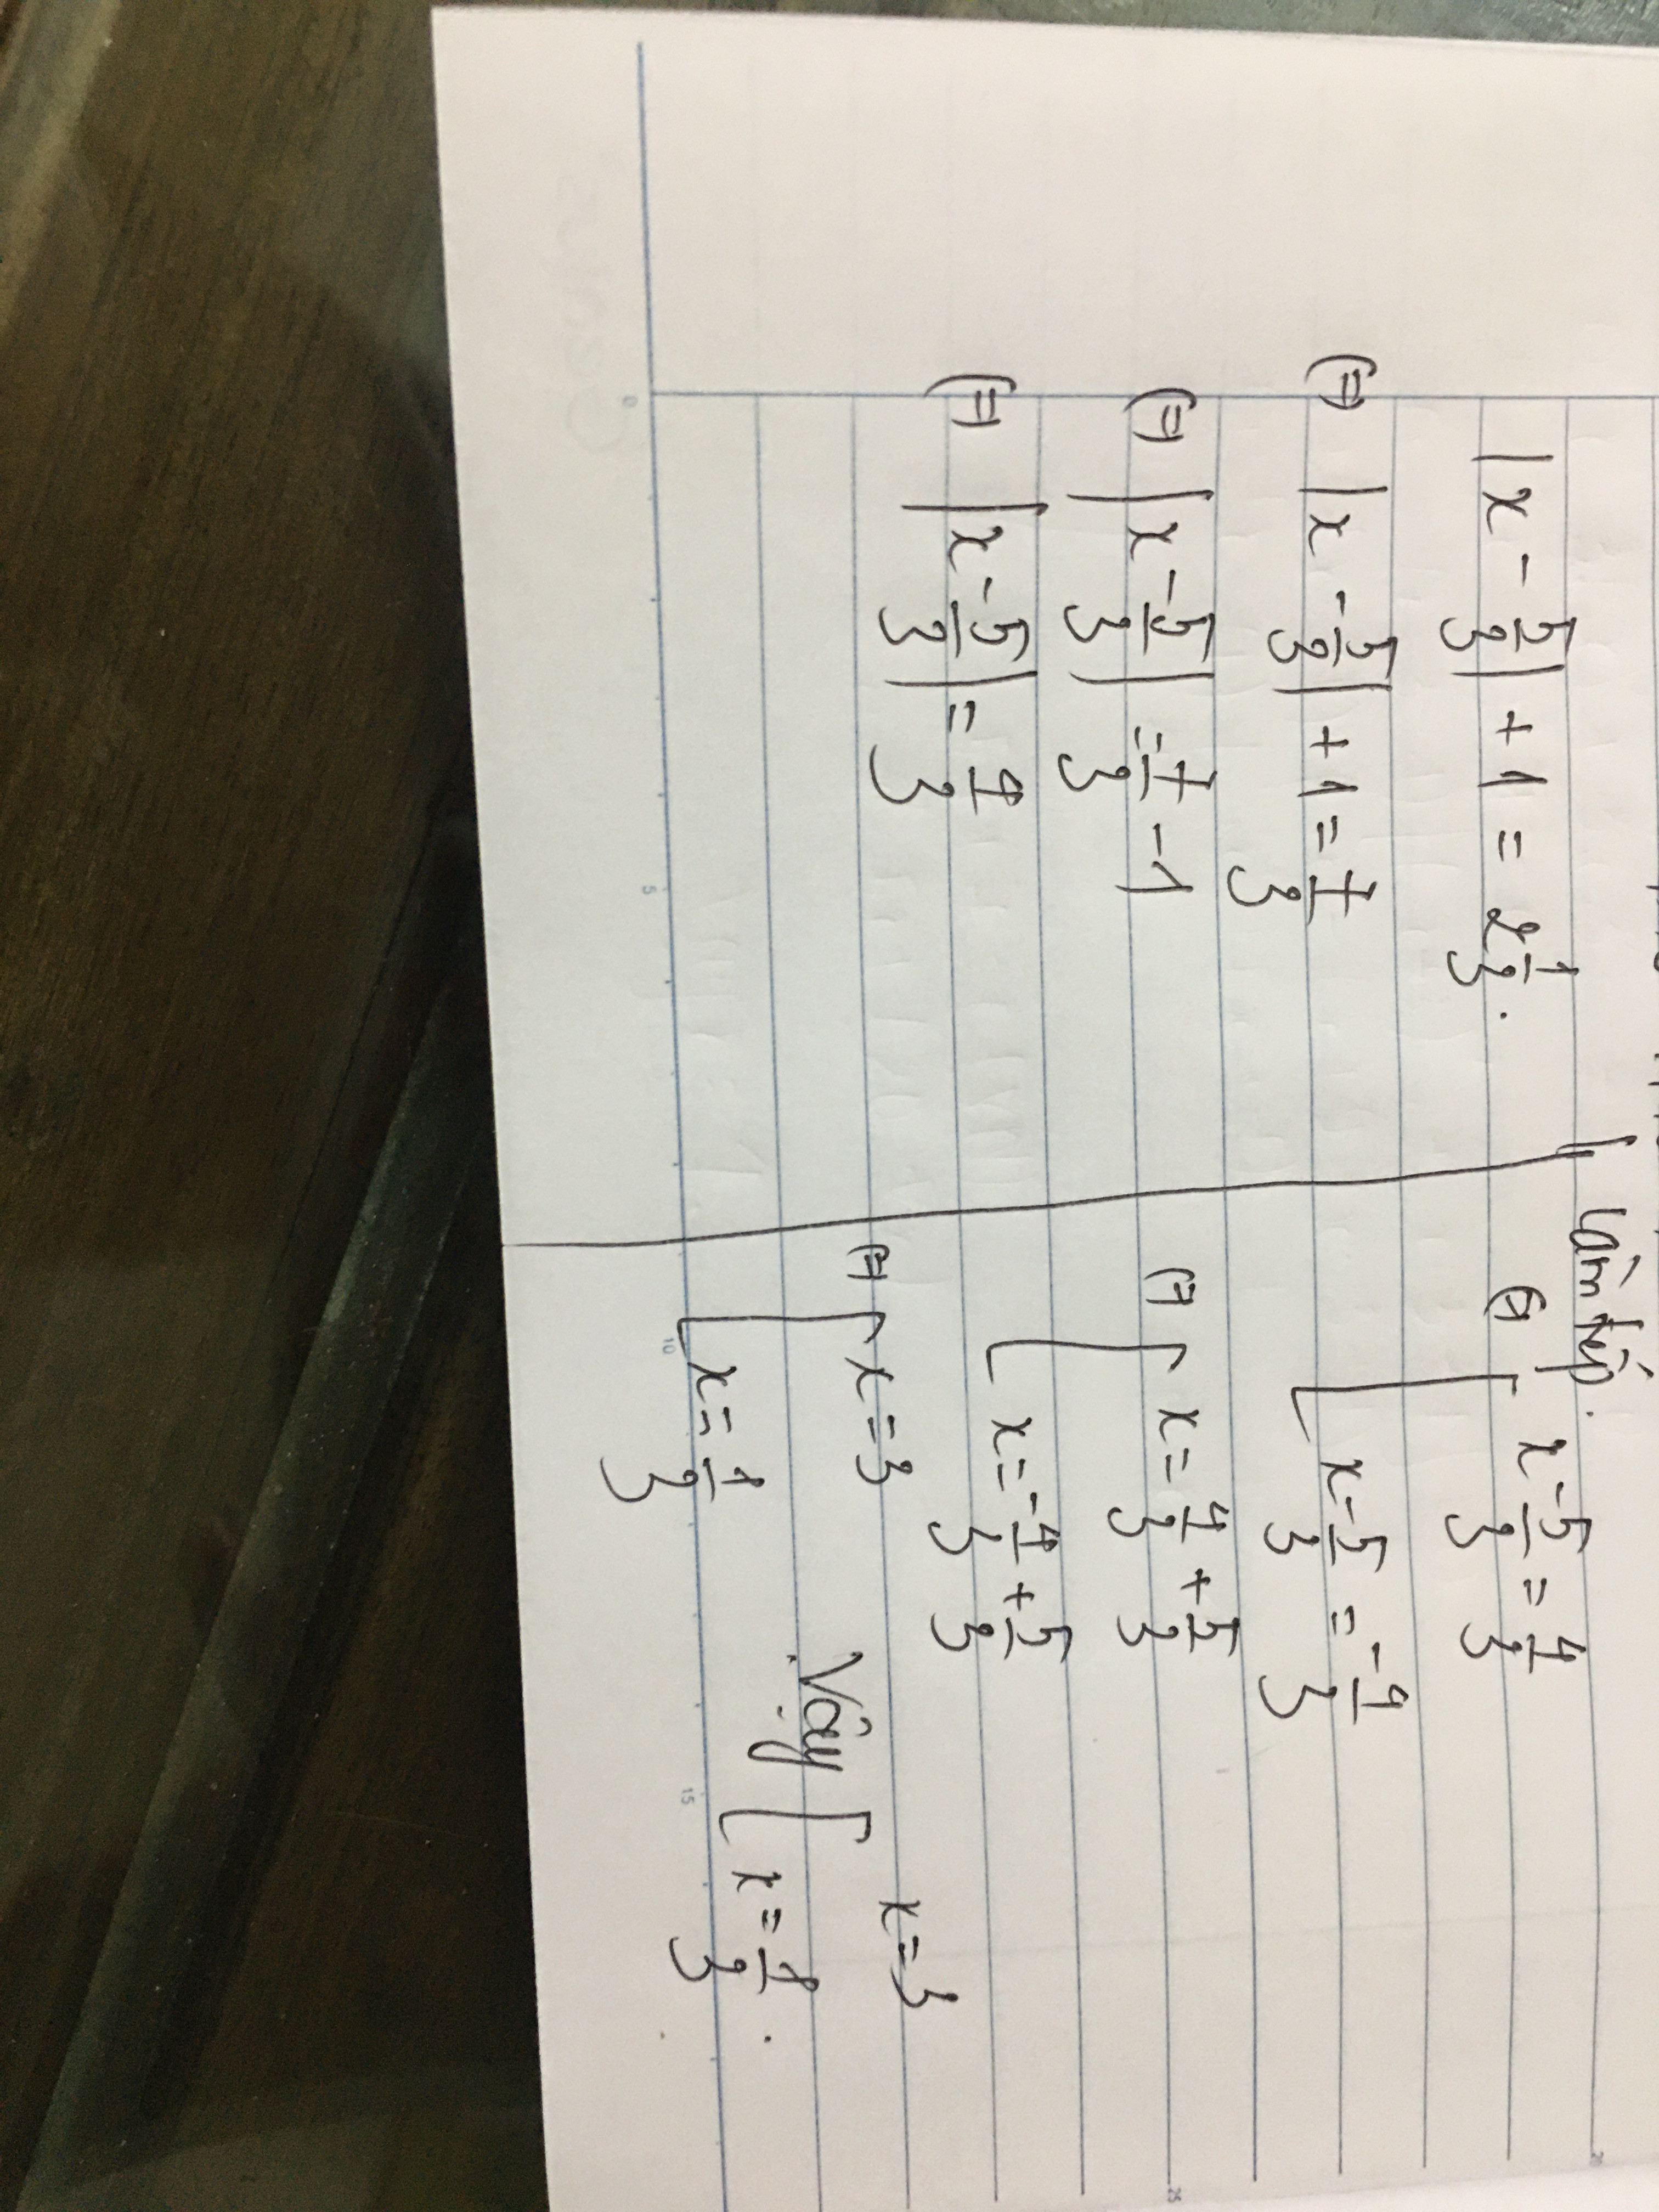 |x - 5/3| + 1 = 2 1/3.
(=) |x - 5/3| + 1 = 7/3
(=) |x - 5/3| = 7/3 - 1
(=) |x - 5/3| = 4/3
Làm tiếp.
(=) [ x - 5/3 = 4/3
[ x - 5/3 = -4/3
(=) [ x = 4/3 + 5/3
[ x = -4/3 + 5/3
(=) [ x = 3
[ x = 1/3
Vậy [ x = 3
[ x = 1/3.
0
5
10
15
20
25